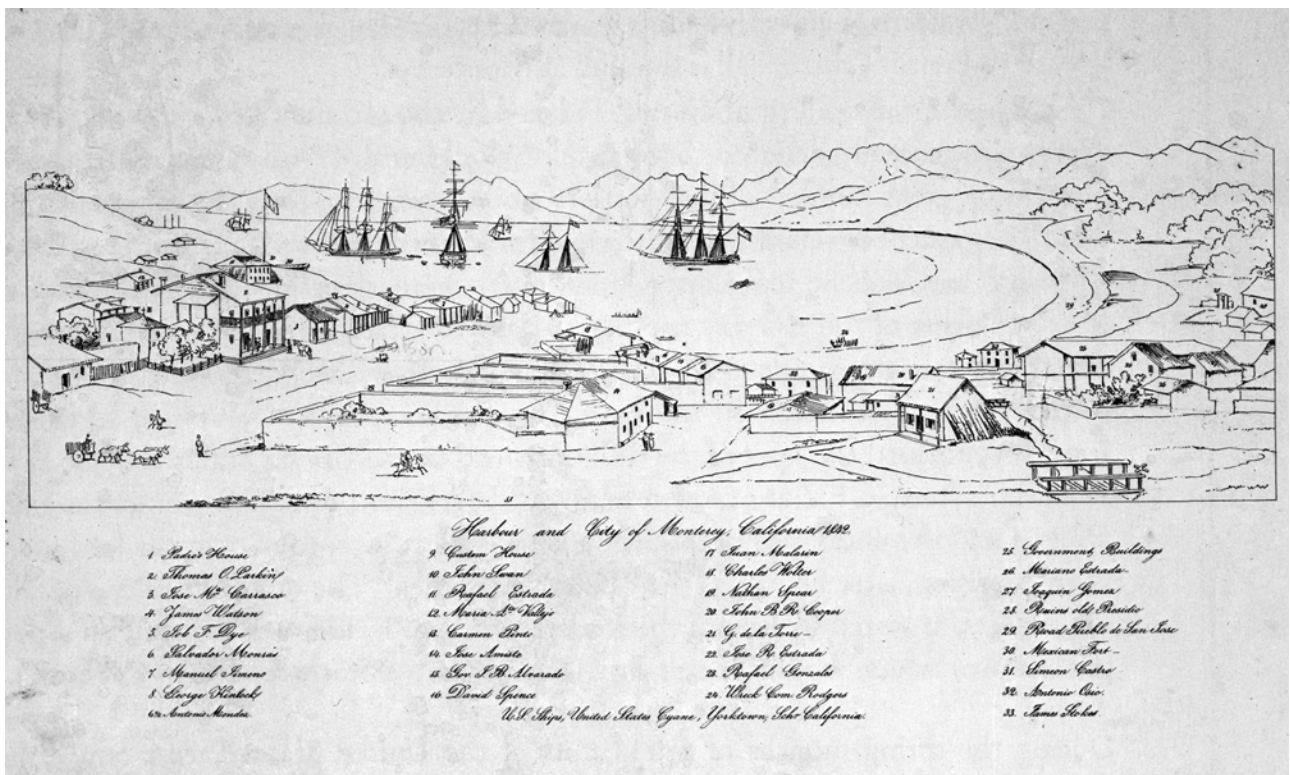 Watson
Harbour and City of Monterey, California 1842
1 Padre's House
2 Thomas O. Larkin
3 Jose Ma. Carrasco
4 James Watson
5 Job F. Dye
6 Salvador Monrás
7 Manuel Jimeno
8 George Kinlock
6½ Antonio Mendez
9 Custom House
10 John Swan
11 Rafael Estrada
12 Maria Ato. Vallejo
13 Carmen Pinto
14 Jose Amista
15 Gov. J. B. Alvarado
16 David Spence
17 Juan Malarin
18 Charles Wolter
19 Nathan Spear
20 John B. R. Cooper
21 G. de la Torre
22 Jose R. Estrada
23 Rafael Gonzales
24 Wreck Com. Rodgers
25 Government Buildings
26 Mariano Estrada
27 Joaquin Gomez
28 Ruins old Presidio
29 Road Pueblo de San Jose
30 Mexican Fort
31 Simeon Castro
32 Antonio Osio.
33 James Stokes
U.S. Ships, United States Cyane, Yorktown, Schr California.